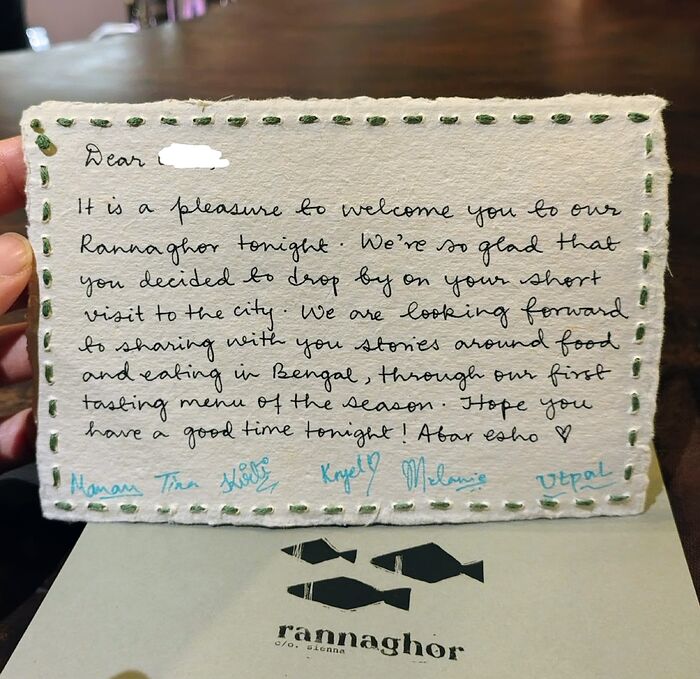 Dear
It is a pleasure to welcome you to our
Rannaghor tonight. We're so glad that
you decided to drop by on your short
visit to the city. We are looking forward
to sharing with you stories around food
and eating in Bengal, through our first
tasting menu of the season. Hope you
have a good time tonight! Abar esho ♡
Tina Melanie Utpal
rannaghor
c/o. sienna